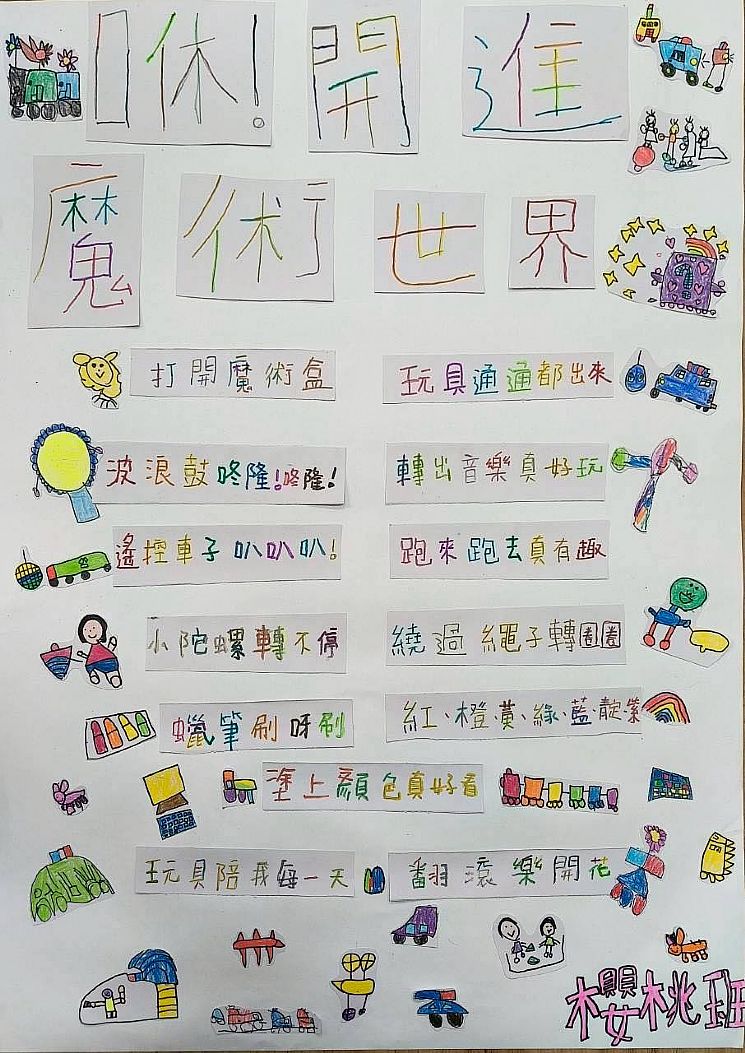 咻!開進
魔術世界
打開魔術盒 玩具通通都出來
波浪鼓咚隆!咚隆! 轉出音樂真好玩
遙控車子叭叭叭! 跑來跑去真有趣
小陀螺轉不停 繞過繩子轉圈圈
蠟筆刷呀刷 紅、橙、黃、綠、藍、靛、紫
塗上顏色真好看
玩具陪我每一天 翻滾樂開花
櫻桃班